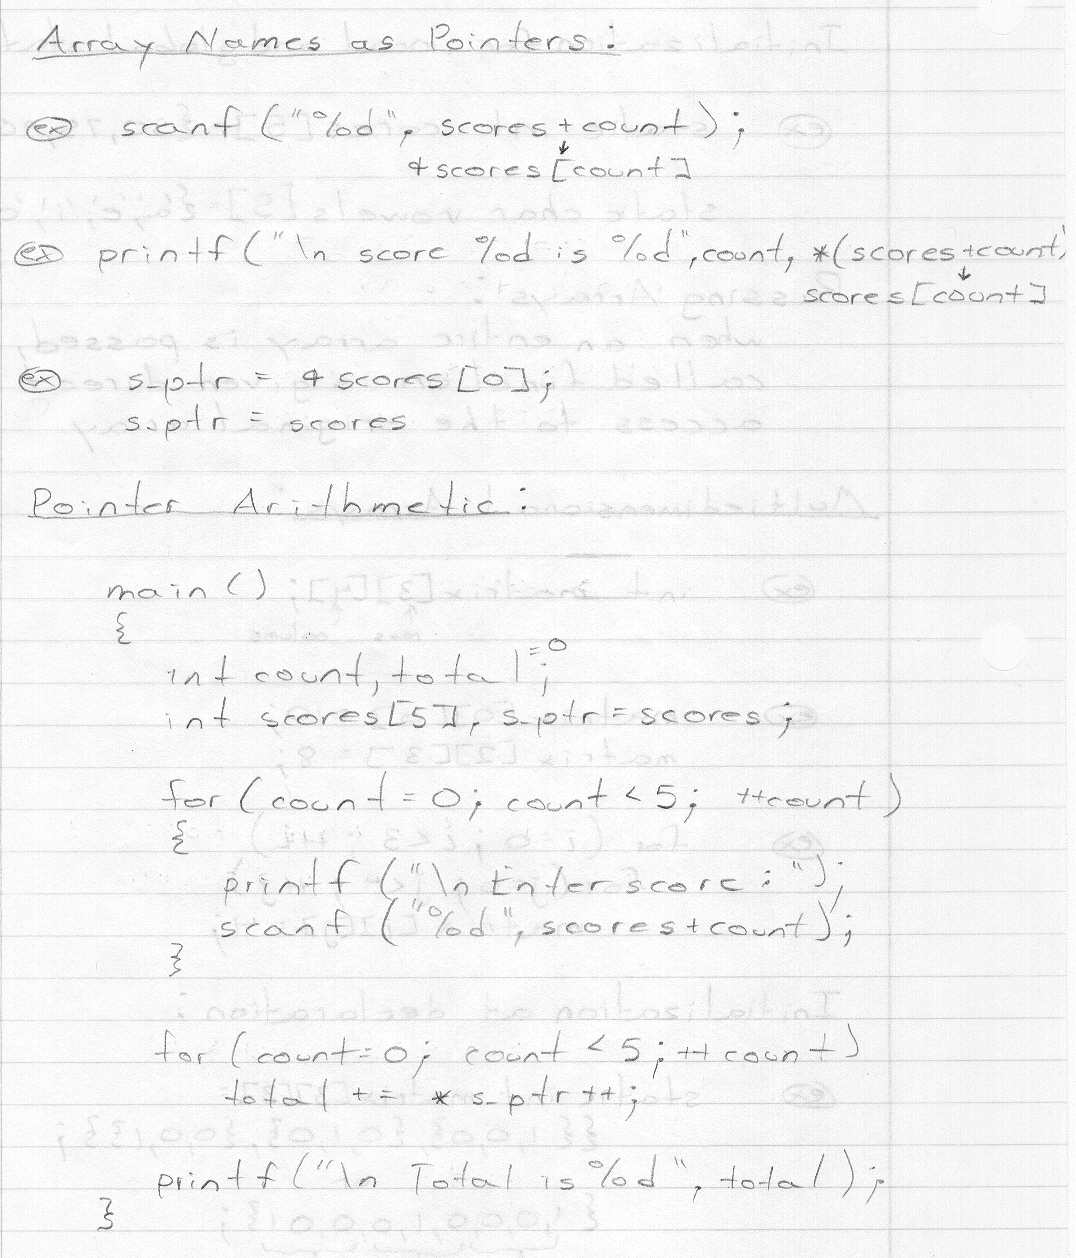 Array Names as Pointers:
ex scanf ("%d", scores + count);
&scores [count]
ex printf ("\n score %d is %d", count, *(scores+count)
scores[count]
ex s_ptr = & scores [0];
s_ptr = scores
Pointer Arithmetic:
main ()
{
int count, total = 0;
int scores[5], s_ptr = scores;
for (count = 0; count < 5; ++count)
{
printf ("\n Enter score: ");
scanf ("%d", scores + count);
}
for (count = 0; count < 5; ++ count)
total += * s_ptr ++;
printf ("\n Total is %d", total);
}